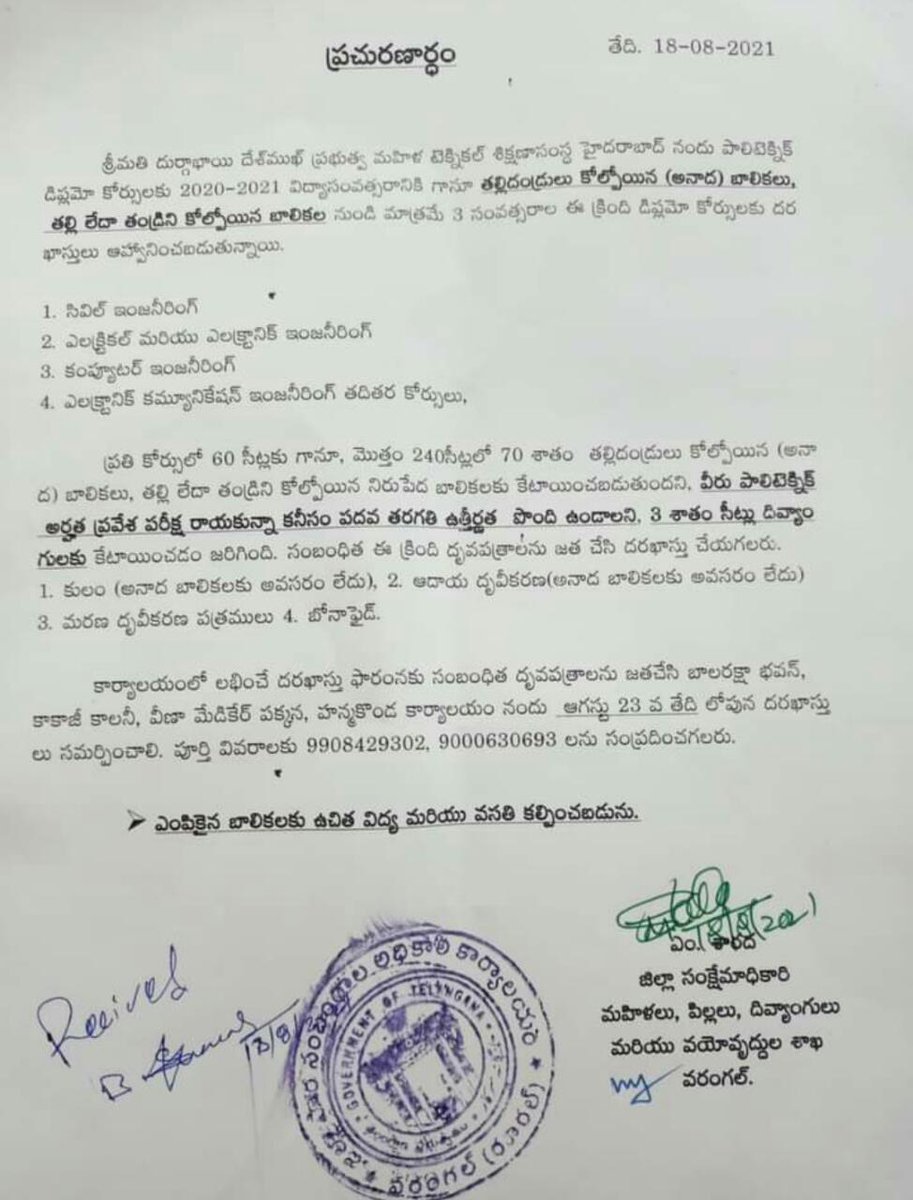 ప్రచురణార్ధం
తేది. 18-08-2021
శ్రీమతి దుర్గాభాయి దేశ్‌ముఖ్ ప్రభుత్వ మహిళ టెక్నికల్ శిక్షణాసంస్థ హైదరాబాద్ నందు పాలిటెక్నిక్
డిప్లమో కోర్సులకు 2020-2021 విద్యాసంవత్సరానికి గానూ తల్లిదండ్రులు కోల్పోయిన (అనాద) బాలికలు,
తల్లి లేదా తండ్రిని కోల్పోయిన బాలికల నుండి మాత్రమే 3 సంవత్సరాల ఈ క్రింది డిప్లమో కోర్సులకు దర
ఖాస్తులు ఆహ్వానించబడుతున్నాయి.
1. సివిల్ ఇంజనీరింగ్
2. ఎలక్ట్రికల్ మరియు ఎలక్ట్రానిక్ ఇంజనీరింగ్
3. కంప్యూటర్ ఇంజనీరింగ్
4. ఎలక్ట్రానిక్ కమ్యూనికేషన్ ఇంజనీరింగ్ తదితర కోర్సులు,
ప్రతి కోర్సులో 60 సీట్లకు గానూ, మొత్తం 240సీట్లలో 70 శాతం తల్లిదండ్రులు కోల్పోయిన (అనా
ద) బాలికలు, తల్లి లేదా తండ్రిని కోల్పోయిన నిరుపేద బాలికలకు కేటాయించబడుతుందని, వీరు పాలిటెక్నిక్
అర్హత ప్రవేశ పరీక్ష రాయకున్నా కనీసం పదవ తరగతి ఉత్తీర్ణత పొంది ఉండాలని, 3 శాతం సీట్లు దివ్యాం
గులకు కేటాయించడం జరిగింది. సంబంధిత ఈ క్రింది దృవపత్రాలను జత చేసి దరఖాస్తు చేయగలరు.
1. కులం (అనాద బాలికలకు అవసరం లేదు), 2. ఆదాయ దృవీకరణ(అనాద బాలికలకు అవసరం లేదు)
3. మరణ దృవీకరణ పత్రములు 4. బోనాఫైడ్.
కార్యాలయంలో లభించే దరఖాస్తు ఫారంనకు సంబంధిత దృవపత్రాలను జతచేసి బాలరక్షా భవన్,
కాకాజీ కాలనీ, వీణా మేడికేర్ పక్కన, హన్మకొండ కార్యాలయం నందు ఆగస్టు 23 వ తేది లోపున దరఖాస్తు
లు సమర్పించాలి. పూర్తి వివరాలకు 9908429302, 9000630693 లను సంప్రదించగలరు.
➢ ఎంపికైన బాలికలకు ఉచిత విద్య మరియు వసతి కల్పించబడును.
ఎం. శారద
జిల్లా సంక్షేమాధికారి
మహిళలు, పిల్లలు, దివ్యాంగులు
మరియు వయోవృద్దుల శాఖ
వరంగల్.
GOVERNMENT OF TELANGANA
వరంగల్ (రూరల్)